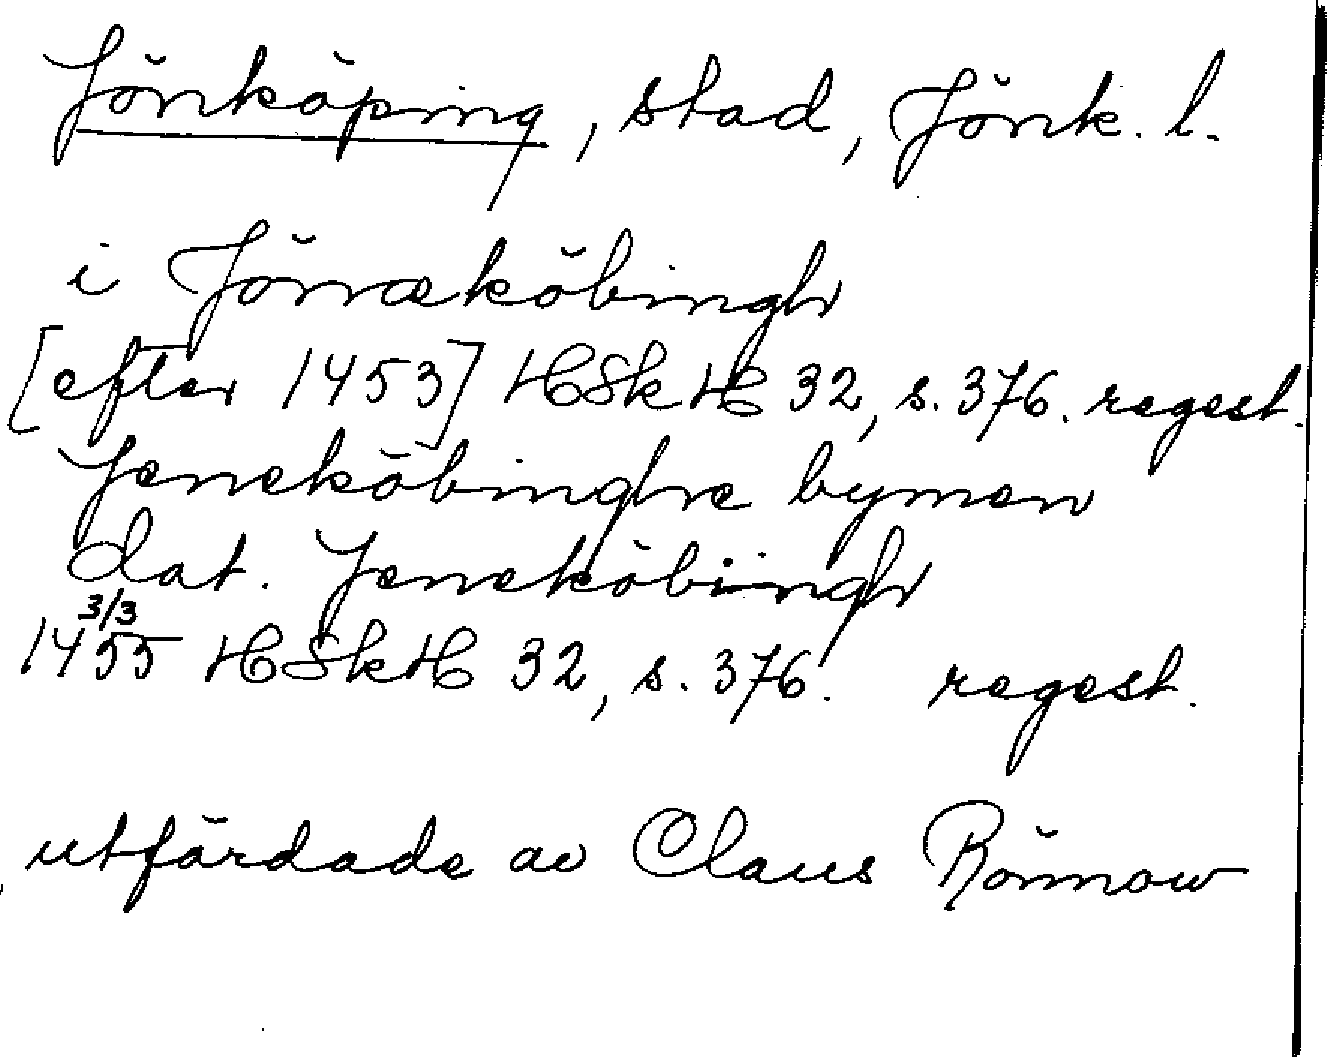 Jönköping, stad, Jönk. l.
i Jönæköbingh
[efter 1453] HSkH 32, s. 376. regest.
Jeneköbinghe bymen
dat. Jeneköbingh
3/3
1455 HSkH 32, s. 376. regest.
utfärdade av Claus Rönnow